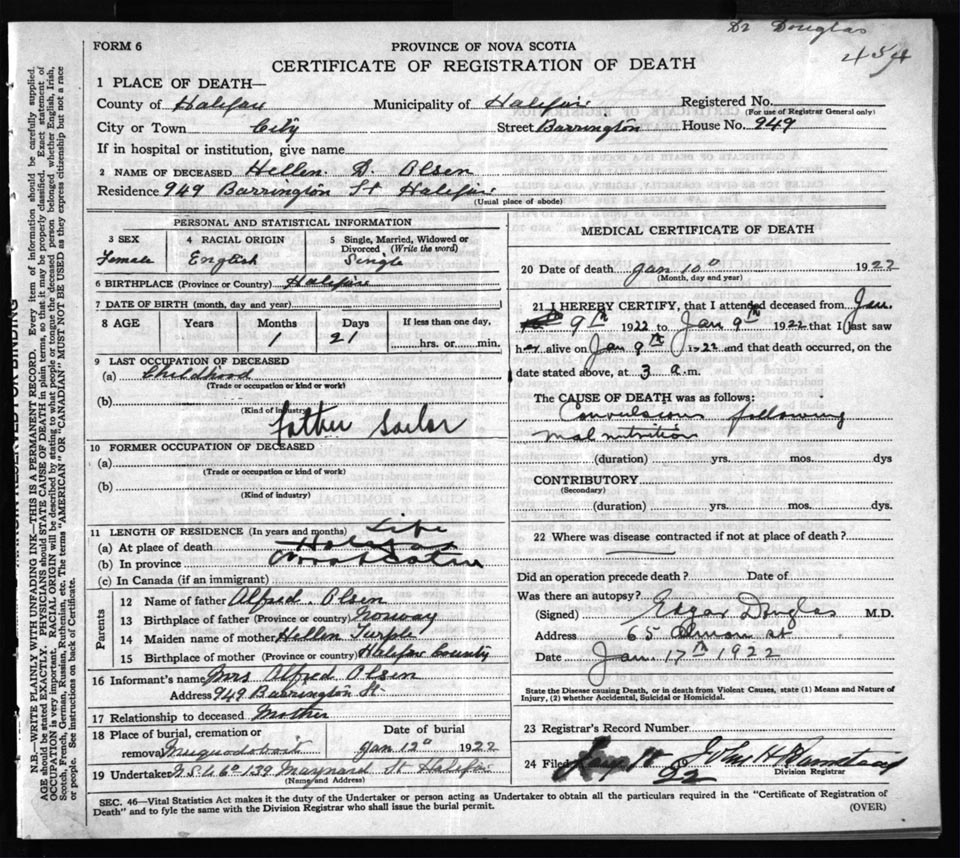 Dr Douglas
454
FORM 6
PROVINCE OF NOVA SCOTIA
CERTIFICATE OF REGISTRATION OF DEATH
1 PLACE OF DEATH—
County of Halifax Municipality of Halifax Registered No.
(For use of Registrar General only)
City or Town City Street Barrington House No. 949
If in hospital or institution, give name
2 NAME OF DECEASED Hellen. D. Olsen
Residence 949 Barrington St Halifax
(Usual place of abode)
PERSONAL AND STATISTICAL INFORMATION
3 SEX 4 RACIAL ORIGIN 5 Single, Married, Widowed or Divorced (Write the word)
Female English Single
6 BIRTHPLACE (Province or Country) Halifax
7 DATE OF BIRTH (month, day and year)
8 AGE Years Months Days If less than one day,
1 21 hrs. or min.
9 LAST OCCUPATION OF DECEASED
(a) Childhood
(Trade or occupation or kind or work)
(b)
(Kind of industry)
father Sailor
10 FORMER OCCUPATION OF DECEASED
(a)
(Trade or occupation or kind of work)
(b)
(Kind of industry)
11 LENGTH OF RESIDENCE (In years and months) Life
(a) At place of death Halifax
(b) In province Nova Scotia
(c) In Canada (if an immigrant)
Parents
12 Name of father Alfred. Olsen
13 Birthplace of father (Province or country) Norway
14 Maiden name of mother Hellen Turple
15 Birthplace of mother (Province or country) Halifax County
16 Informant's name Mrs Alfred Olsen
Address 949 Barrington St
17 Relationship to deceased Mother
18 Place of burial, cremation or
removal Musquodoboit Jan 12" 1922
19 Undertaker 139 Maynard St Halifax
(Name and Address)
MEDICAL CERTIFICATE OF DEATH
20 Date of death Jan 10" 1922
(Month, day and year)
21 I HEREBY CERTIFY, that I attended deceased from Jan.
9th 1922 to Jan 9th 1922 that I last saw
her alive on Jan 9th 1922 and that death occurred, on the
date stated above, at 3 a.m.
The CAUSE OF DEATH was as follows:
Convulsions following
malnutrition
(duration) yrs. mos. dys
CONTRIBUTORY
(Secondary)
(duration) yrs. mos. dys.
22 Where was disease contracted if not at place of death?
Did an operation precede death? Date of
Was there an autopsy?
(Signed) Edgar Douglas M.D.
Address 65 Almon st
Date Jan. 17th 1922
State the Disease causing Death, or in death from Violent Causes, state (1) Means and Nature of
Injury, (2) whether Accidental, Suicidal or Homicidal.
23 Registrar's Record Number
24 Filed 19 22
Division Registrar
SEC. 46—Vital Statistics Act makes it the duty of the Undertaker or person acting as Undertaker to obtain all the particulars required in the "Certificate of Registration of
Death" and to fyle the same with the Division Registrar who shall issue the burial permit.
(OVER)
N.B.—WRITE PLAINLY WITH UNFADING INK—THIS IS A PERMANENT RECORD. Every item of information should be carefully supplied.
AGE should be stated EXACTLY. PHYSICIANS should STATE CAUSE OF DEATH in plain terms, so that it may be properly classified. Exact statement of
OCCUPATION is very important. RACIAL ORIGIN will be described by stating to what people or tongue the deceased person belonged whether English, Irish,
Scotch, French, German, Russian, Ruthenian, etc. The terms "AMERICAN" OR "CANADIAN" MUST NOT BE USED as they express citizenship but not a race
or people. See instructions on back of Certificate.